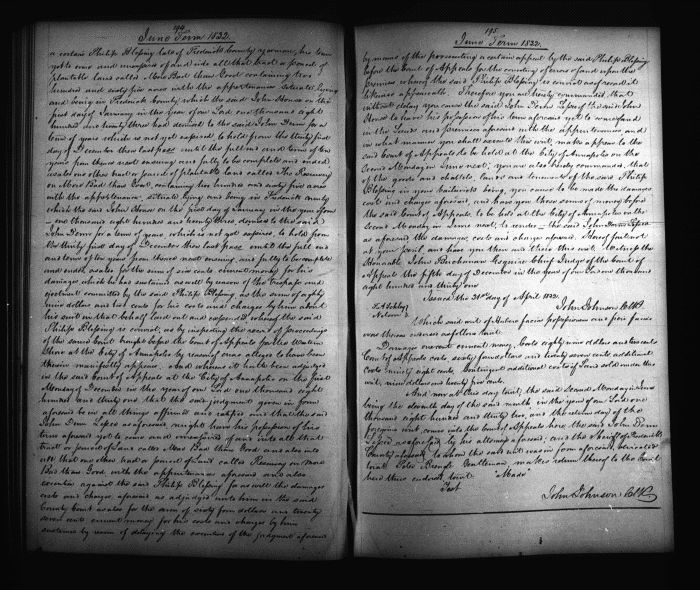 194
June Term 1832.
a certain Philip Blessing late of Frederick County yeoman, his term
yet to come and unexpired of and into all that tract or parcel of
plantable land called More Bad than Good containing two
hundred and sixty five acres with the appurtenances situate lying
and being in Frederick County which the said John House on the
first day of January in the year of our Lord one thousand eight
hundred and twenty three had demised to the said John Denn for a
term of years which is not yet expired, to hold from the thirty first
day of December then last past until the full end and term of ten
years from thence next ensuing and fully to be complete and ended
on More Bad than Good, containing two hundred and sixty five acres
with the appurtenances, situate lying and being in Frederick County
which the said John House on the first day of January in the year of our
one thousand eight hundred and twenty three, demised to the said
John Denn for a term of years which is not yet expired, to hold from
the thirty first day of December then last past until the full end
and term of ten years from thence next ensuing and fully to be complete
and ended as also for the sum of six cents current money for his
damages which he has sustained as well by reason of the trespass and
ejectment committed by the said Philip Blessing, as the sum of
nine dollars and cents for his costs and charges by him about
his suit in that behalf laid out and expended, whereof the said
Philip Blessing is convict, as by inspecting the record of proceedings
of the same Court brought before the Court of Appeals for the Western
Shore at the City of Annapolis by reason of error alleged to have been
therein manifestly appears. And whereas it hath been adjudged
in the said Court of Appeals at the City of Annapolis on the first
Monday of December in the year of our Lord one thousand eight
hundred and thirty one, that the said judgment given in form
aforesaid be in all things affirmed and ratified and that the said
John Denn Lessee as aforesaid might have his possession of his
term aforesaid yet to come and unexpired of and into all that
tract or parcel of land called More Bad than Good and also into
all that one other tract or parcel of land called Resurvey on More
Bad than Good with the appurtenances aforesaid and also
execution against the said Philip Blessing for as well the damages
costs and charges aforesaid as adjudged unto him in the said
County Court as also for the sum of sixty four dollars and twenty
seven cents current money for his costs and charges by him
sustained by reason of delaying the execution of the judgment aforesaid
195.
June Term 1832.
by means of the prosecuting a certain appeal by the said Philip Blessing
before the Court of Appeals for the correcting of errors of and upon the
premises whereof the said Philip Blessing is convict as of record
likewise appeareth. Therefore you are hereby commanded, that
without delay you cause the said John Denn Lessee of the said John
House to have his possession of his term aforesaid yet to come of and
in the lands and premises aforesaid with the appurtenances and
in what manner you shall execute this writ, make appear to the
said Court of Appeals to be held at the City of Annapolis on the
second Monday in June next, you are also hereby commanded, that
of the goods and chattels, lands and tenements of the said Philip
Blessing in your bailiwick being, you cause to be made the damages
costs and charges aforesaid, and have you those sums of money before
the said Court of Appeals, to be held at the City of Annapolis on the
second Monday in June next, to render to the said John Denn Lessee
as aforesaid the damages, costs and charges aforesaid. Hereof fail not
at your peril and have you then and there this writ. Witness the
Honorable John Buchanan Esquire Chief Judge of the Court of
Appeals the fifth day of December in the year of our Lord one thousand
eight hundred and thirty one
Issued the day of April 1832.
John Johnson Clk.
Which said writ of Habere facias possessionem and fieri facias
was thereon endorsed as follows to wit:
Damages one cent current money, Costs eighty nine dollars and two cents
Court of Appeals costs sixty four dollars and twenty seven cents additional
costs ninety eight cents. Contingent additional costs if Lands sold under this
writ, nine dollars and twenty five cents.
And now at this day to wit, the said second Monday in June
being the eleventh day of the said month in the year of our Lord one
thousand eight hundred and thirty two, and the return day of the
foregoing writ comes into the Court of Appeals here the said John Denn
Lessee as aforesaid by his attorney aforesaid, and the Sheriff of Frederick
County aforesaid to whom the said writ was in form aforesaid directed
to wit Peter Brengle Gentleman makes return thereof to the Court
here thus endorsed, to wit "Made"
Test
John Johnson Clk